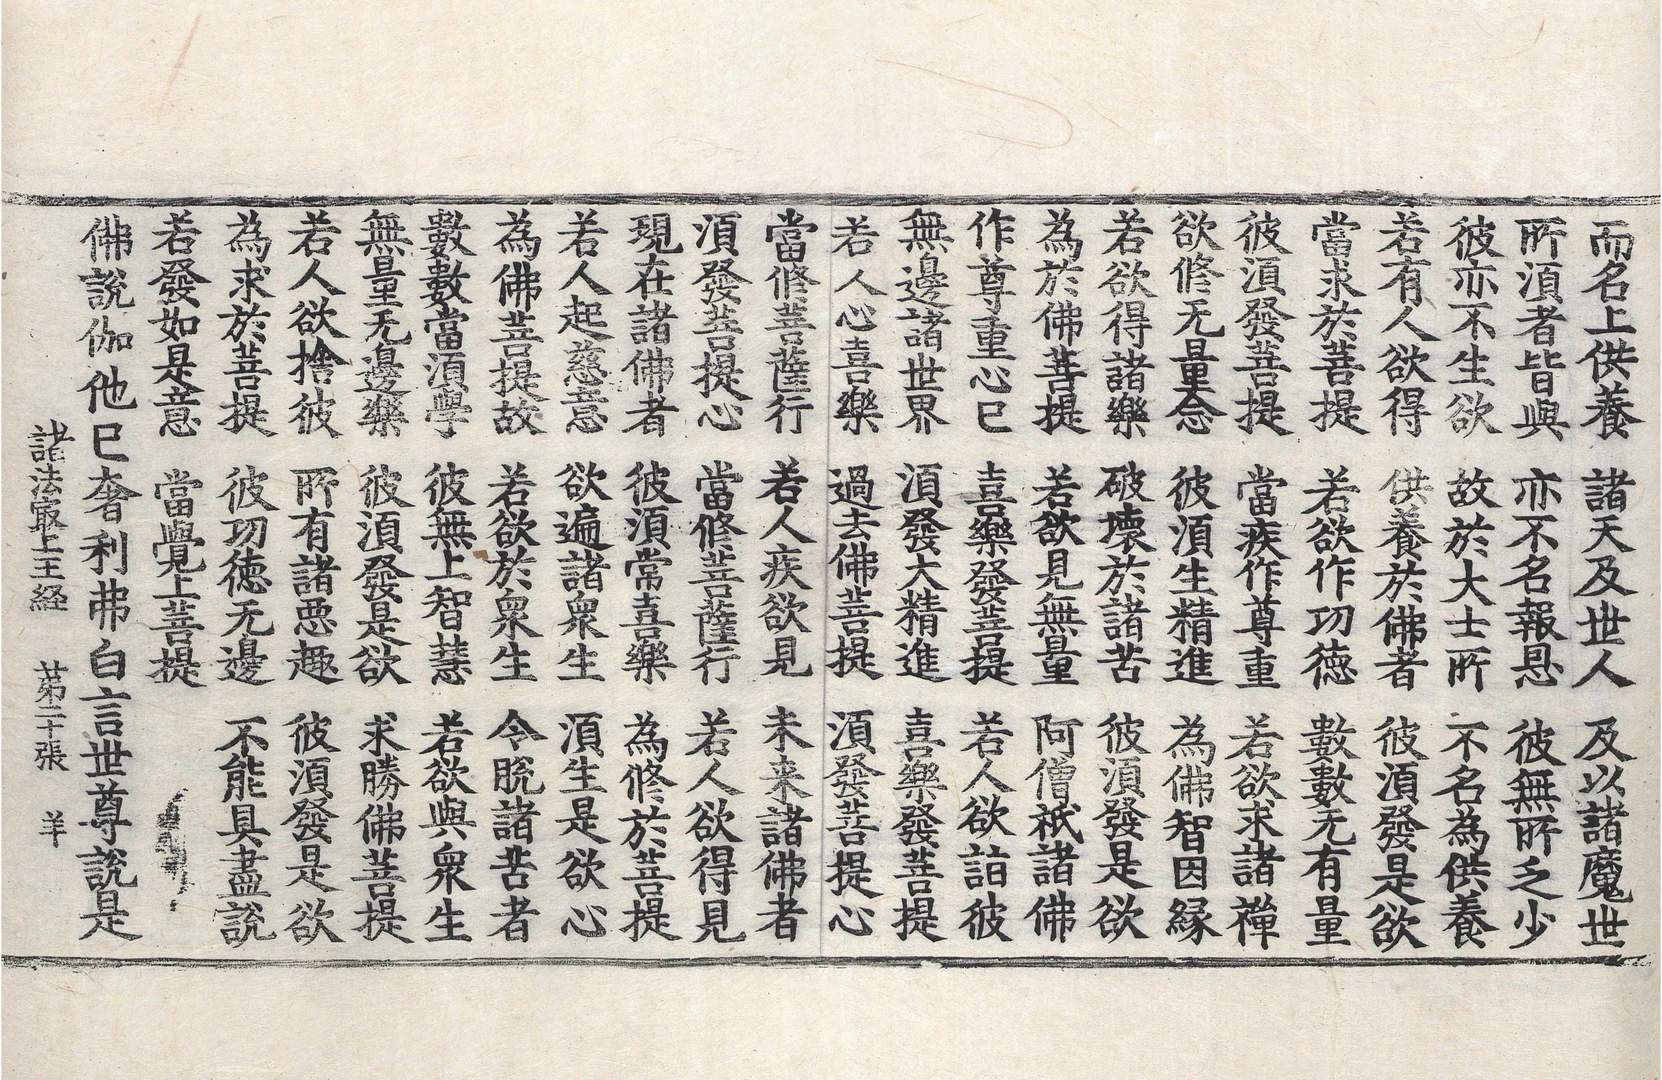 而名上供養　諸天及世人　及以諸魔世
所湏者皆與　亦不名報恩　彼無所乏少
彼亦不生欲　故於大士所　不名為供養
若有人欲得　供養於佛者　彼湏發是欲
當求於菩提　若欲作功德　數數无有量
彼湏發菩提　當疾作尊重　若欲求諸禪
欲修无量念　彼湏生精進　為佛智因緣
若欲得諸樂　破壞於諸苦　彼湏發是欲
為於佛菩提　若欲見無量　阿僧祇諸佛
作尊重心已　喜樂發菩提　若人欲詣彼
無邊諸世界　湏發大精進　喜樂發菩提
若人心喜樂　過去佛菩提　湏發菩提心
當修菩薩行　若人疾欲見　未来諸佛者
湏發菩提心　當修菩薩行　若人欲得見
現在諸佛者　彼湏常喜樂　為修於菩提
若人起慈意　欲遍諸衆生　湏生是欲心
為佛菩提故　若欲於衆生　令脫諸苦者
數數當湏學　彼無上智慧　若欲與衆生
無量无邊樂　彼湏發是欲　求勝佛菩提
若人欲捨彼　所有諸惡趣　彼湏發是欲
為求於菩提　彼功德无邊　不能具盡說
若發如是意　當覺上菩提
佛說伽他已奢利弗白言世尊說是
諸法最上王経　苐二十張　羊